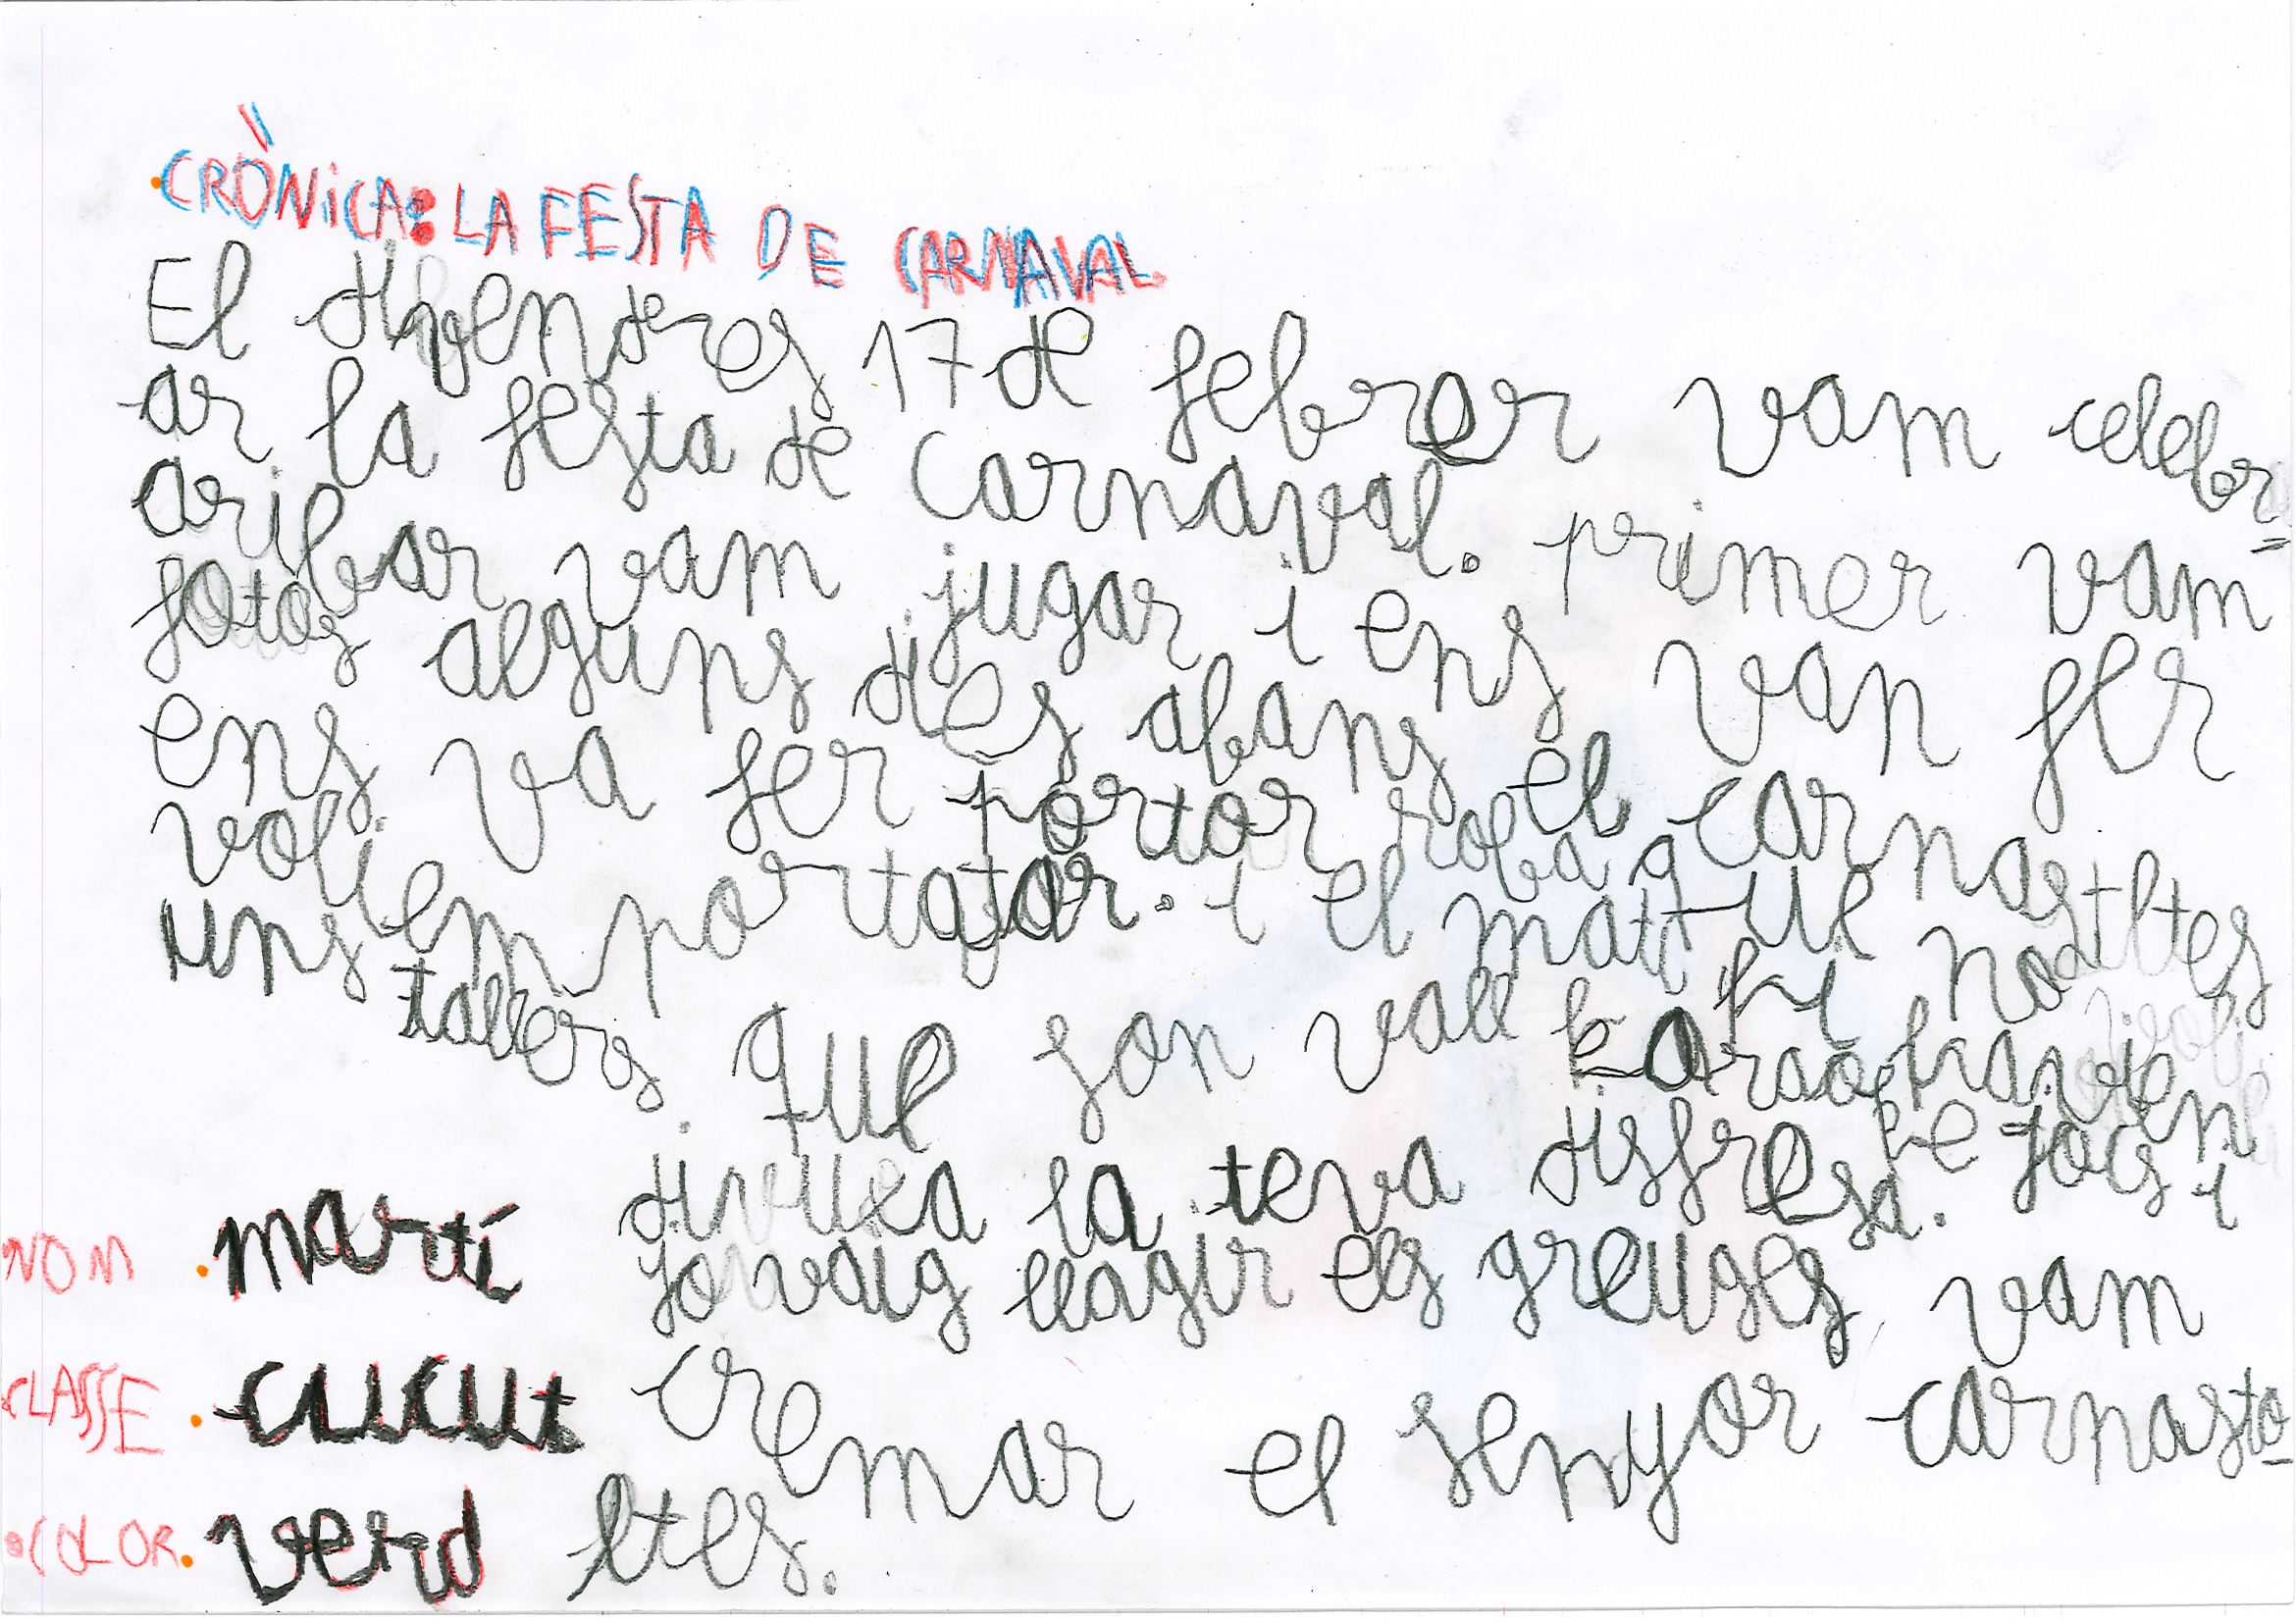 CRÒNiCA: LA FESTA DE CARNAVAL
El divendres 17 de febrer vam celebr=
ar la festa de carnaval. primer vam
aribar vam jugar i ens van fer
fotos alguns dies abans el carnastltes
ens va fer portar roba que nosaltes
voliem portar. i el matí hi havien
uns tallers que son vall karaoke jocs i
divuixa la teva disfresa.
jo vaig llagir els greuges vam
cremar el senyor carnasto
ltes.
NOM martí
CLASSE cucut
COLOR verd